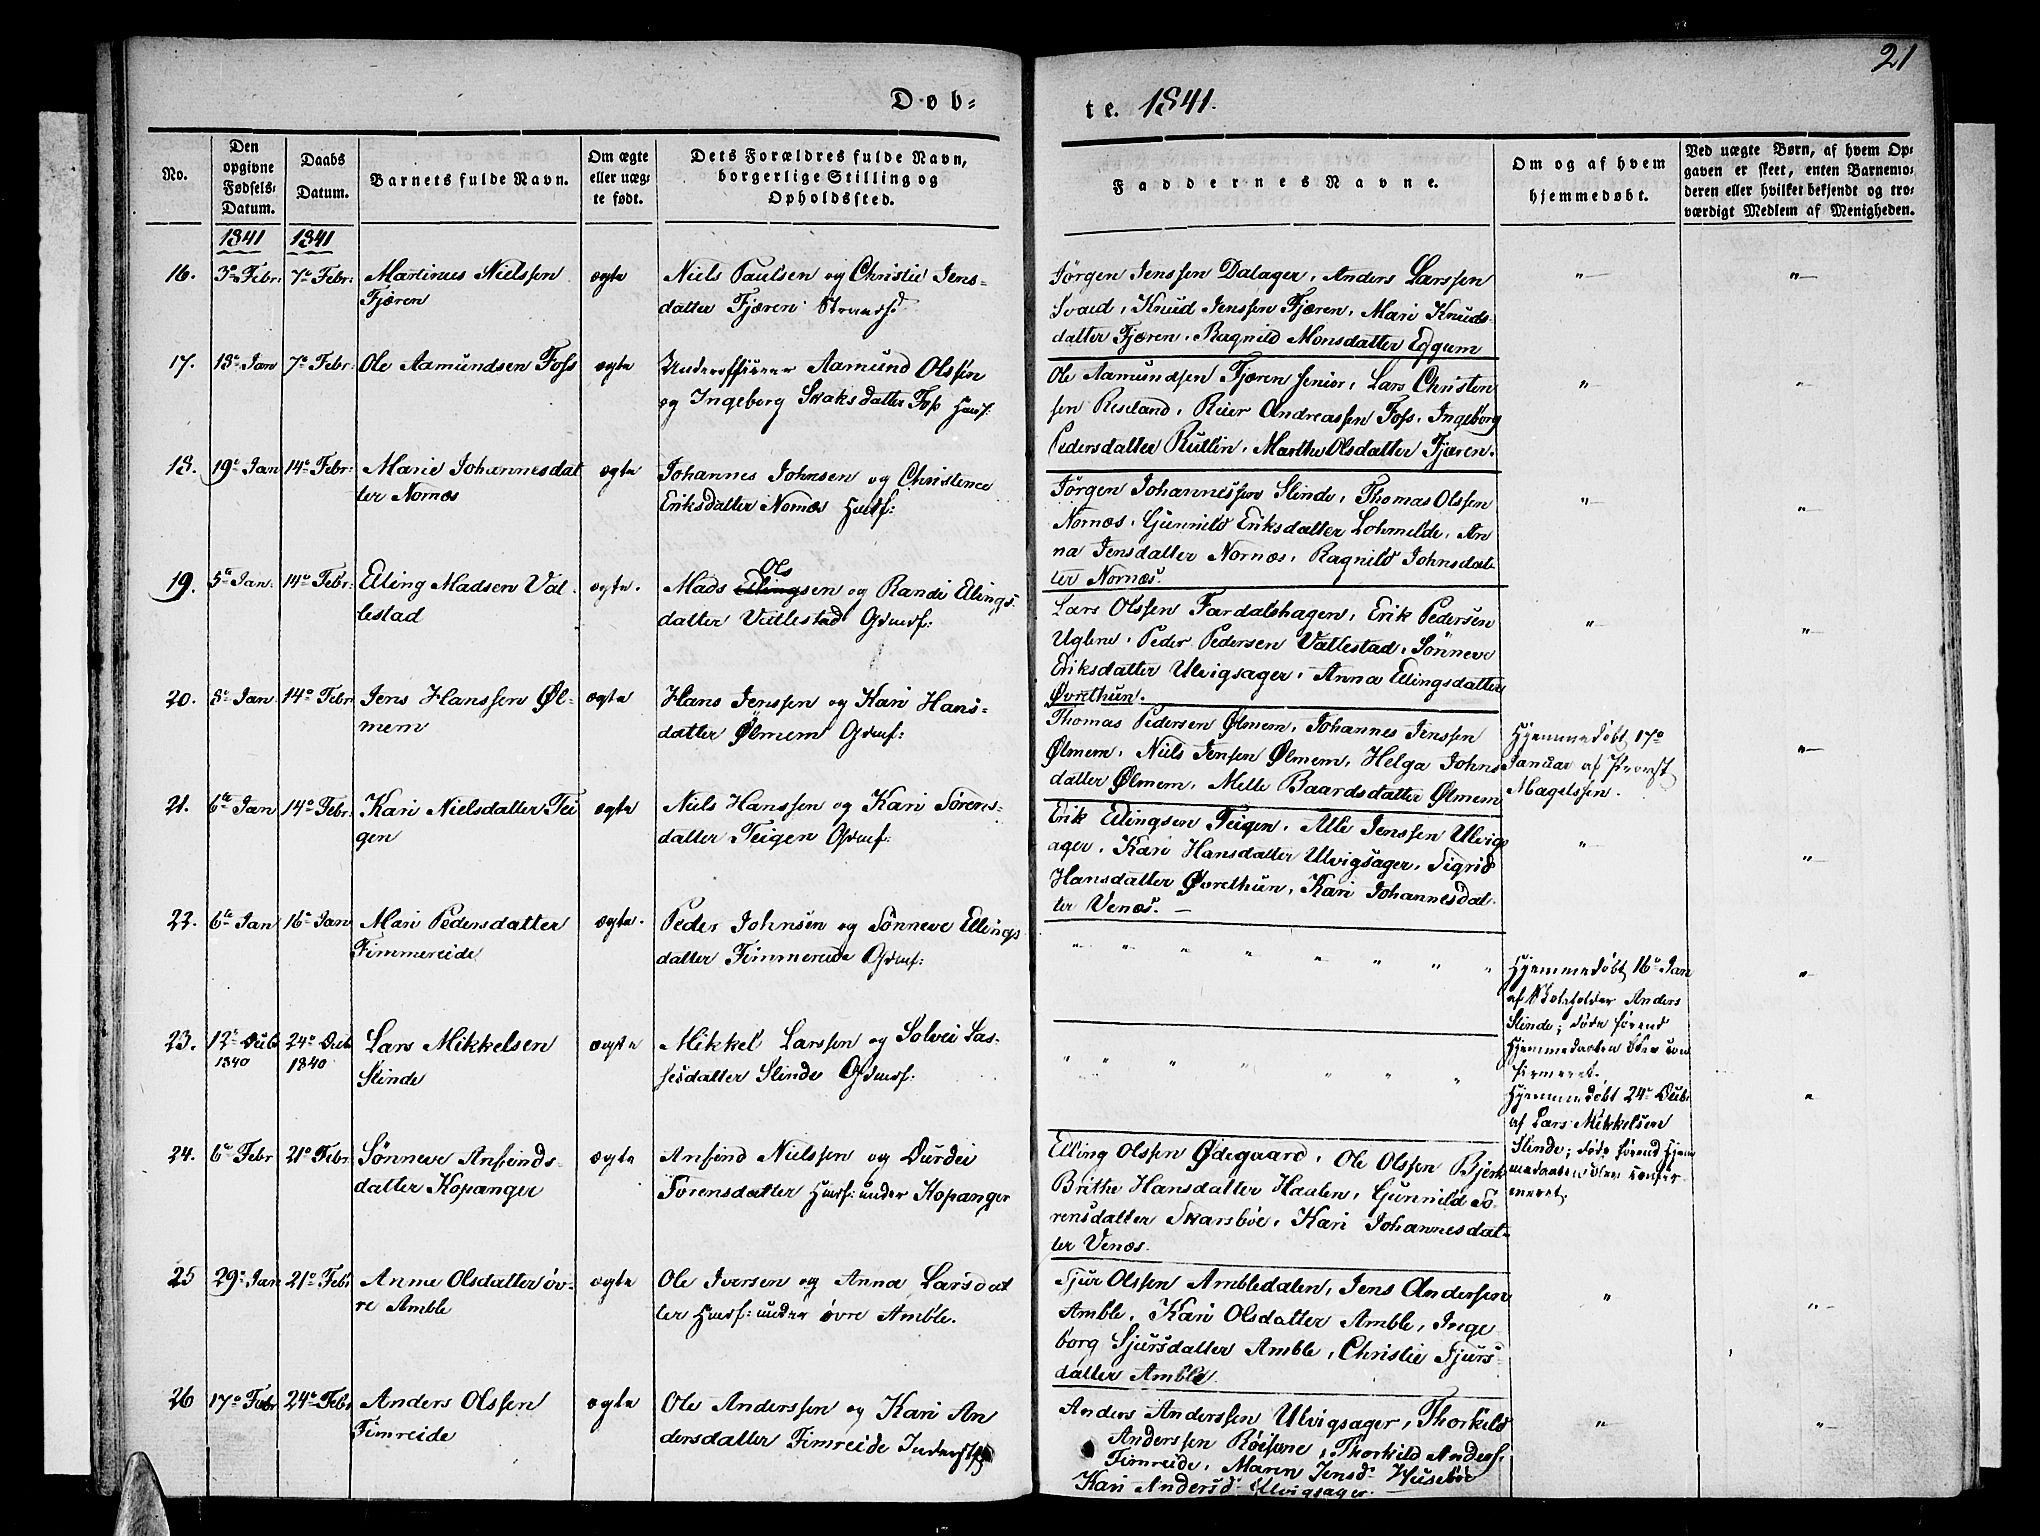 21
Døb=
te. 1841.
No.
Den opgivne Fødsels-Datum.
Daabs Datum.
Barnets fulde Navn.
Om ægte eller uæg-te født.
Dets Forældres fulde Navn, borgerlige Stilling og Opholdssted.
Faddernes Navne.
Om og af hvem hjemmedøbt.
Ved uægte Børn, af hvem Op-gaven er skeet, enten Barnemo-deren eller hvilket bekjendt og tro-værdigt Medlem af Menigheden.
1841 1841
16. 3e Febr: 7e Febr: Martinus Nielssen
Fjæren
ægte
Niels Paulsen og Christie Jens-
datter Fjæren Strands:
Jörgen Jenssen Dalager, Anders Larssen
Svaed, Knud Jenssen Fjæren, Mari Knuds-
datter Fjæren, Ragnild Monsdatter Eggum
17. 18e Jan 7e Febr: Ole Aamundsen Foss
ægte
Underofficeer Aamund Olssen
og Ingeborg Skaksdatter Foss Huusf:
Ole Aamundsen Fjæren senior, Lars Christen
sen Reseland, Reier Andreassen Foss, Ingeborg
Pedersdatter Rutlin, Marthe Olsdatter Fjæren.
18. 19e Jan 14e Febr: Marie Johannesdat
ter Nornæs
ægte
Johannes Johnsen og Christence
Eriksdatter Nornæs Huusf:
Jörgen Johannessen Slinde, Thomas Olssen
Nornæs, Gunnild Eriksdatter Lohmelde, An
na Jensdatter Nornæs, Ragnild Johnsdat-
ter Nornæs.
19. 5te Jan. 14e Febr: Elling Madsen Val
lestad
ægte.
Ols
Mads Ellingsen og Randi Ellings-
datter Vallestad Gdmdf:
Lars Olssen Fardalshagen, Erik Pedersen
Uglene, Peder Pedersen Vallestad, Sönneve
Eriksdatter Ulvigsager, Anna Ellingsdatter
Øvrethun.
20. 8e Jan 14e Febr Jens Hanssen Øl-
mem
ægte
Hans Jenssen og Kari Hans-
datter Ølmem Gdmf:
Thomas Pedersen Ølmem, Johannes Jenssen
Ølmem, Niels Jensen Ølmem, Helga Johns
datter Ølmem, Melle Baardsdatter Ølmem
Hjemmedøbt 17e
Januar af Provst
Magelssen.
21. 6te Jan 14e Febr: Kari Nielsdatter Tei
gen
ægte
Niels Hanssen og Kari Sörens-
datter Teigen Gdmf:
Erik Ellingsen Teigen, Alle Jenssen Ulvigs
ager, Kari Hansdatter Ulvigsager, Sigrid
Hansdatter Øvrethun, Kari Johannesdat-
ter Venæs.
22. 6te Jan 16e Jan Mari Pedersdatter
Fimmereide
ægte.
Peder Johnsen og Sönneve Ellings
datter Fimmereide Gdmf:
Hjemmedøbt 16e Jan
af Skoleholder Anders
Slinde; døde førend
Hjemmedaaben blev con
firmeret.
23. 12e Decb 24e Decb Lars Mikkelsen
1840 1840
Slinde
ægte
Mikkel Larssen og Solvei Las-
sesdatter Slinde Gdmf:
Hjemmedøbt 24e Decb:
af Lars Mikkelsen
Slinde; døde førend Hjem
medaaben blev confir
meret.
24. 6te Febr 21e Febr Sönneve Anfinds-
datter Kopanger
ægte
Anfind Nielssen og Durdei
Sorensdatter Huusf: under Kopanger
Elling Olssen Ødegaard, Ole Olssen Bjerk
Brithe Hansdatter Haalen, Gunnild Sö-
rensdatter Skarsböe, Kari Johannesdat-
ter Venæs.
25 29e Jan 21e Febr Anne Olsdatter öv-
re Amble
ægte
Ole Iversen og Anna Larsdat
ter Huusf: under övre Amble.
Sjur Olssen Ambledalen, Jens Andersen
Amble, Kari Olsdatter Amble, Inge-
borg Sjursdatter Amble, Christie Sjurs-
datter Amble.
26 17e Febr 24e Febr Anders Olssen
Fimreide
ægte
Ole Anderssen og Kari An
dersdatter Fimreide
Anders Anderssen Ulvigsager, Thorkild
Anderssen Röisene, Thorkild Anderss.
Fimreide, Maren Jensd: Huseböe
Kari Andersd: Ulvigsager.